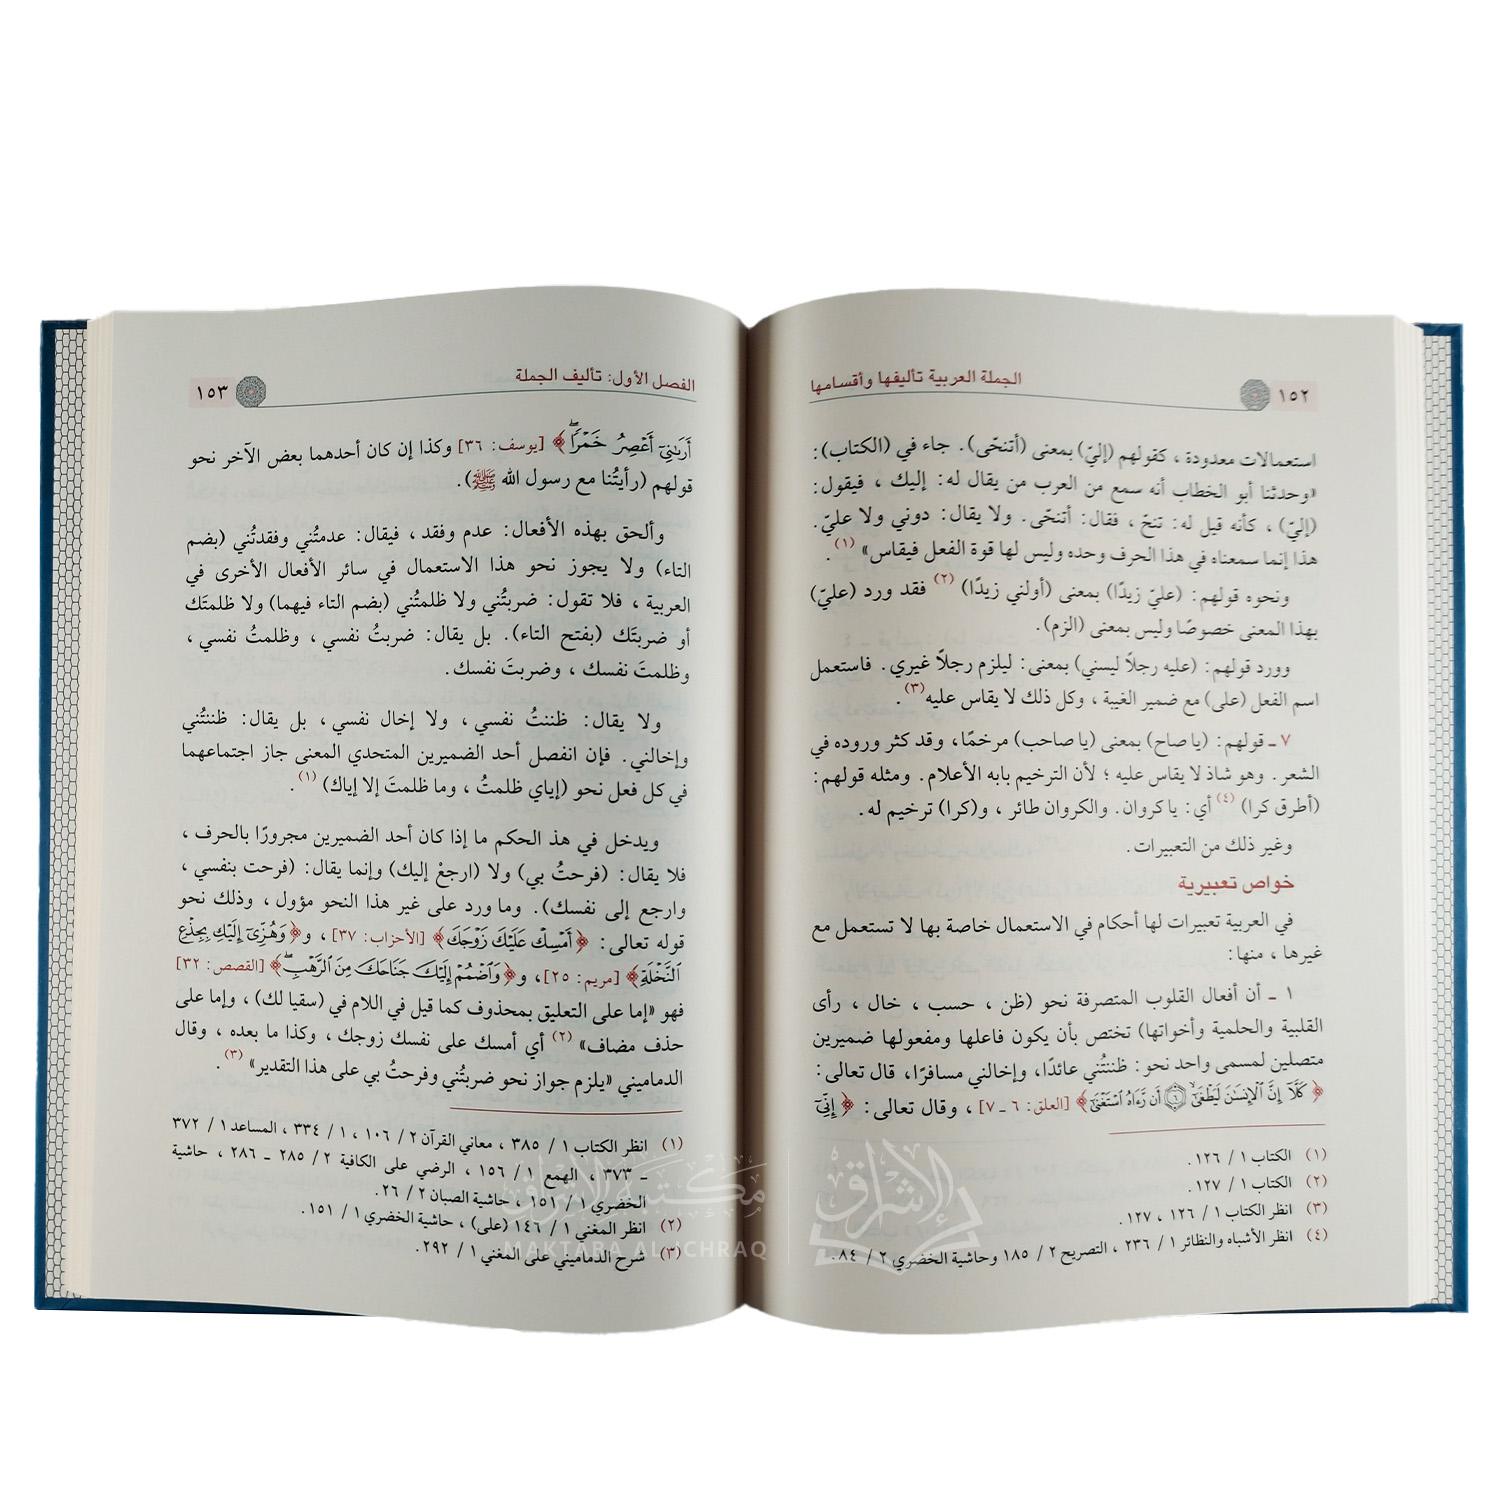 ١٥٢ الجملة العربية تأليفها وأقسامها
استعمالات معدودة ، كقولهم (إليّ) بمعنى (أتنحّى). جاء في (الكتاب):
«وحدثنا أبو الخطاب أنه سمع من العرب من يقال له: إليك ، فيقول:
(إليّ) ، كأنه قيل له: تنحّ ، فقال: أتنحّى. ولا يقال: دوني ولا عليّ.
هذا إنما سمعناه في هذا الحرف وحده وليس لها قوة الفعل فيقاس» (١).
ونحوه قولهم: (عليّ زيدًا) بمعنى (أولني زيدًا) (٢) فقد ورد (عليّ)
بهذا المعنى خصوصًا وليس بمعنى (الزم).
وورد قولهم: (عليه رجلًا ليسني) بمعنى: ليلزم رجلًا غيري. فاستعمل
اسم الفعل (على) مع ضمير الغيبة ، وكل ذلك لا يقاس عليه(٣).
٧ ـ قولهم: (يا صاح) بمعنى (يا صاحب) مرخمًا، وقد كثر وروده في
الشعر. وهو شاذ لا يقاس عليه ؛ لأن الترخيم بابه الأعلام. ومثله قولهم:
(أطرق كرا) (٤) أي: يا كروان. والكروان طائر ، و(كرا) ترخيم له.
وغير ذلك من التعبيرات.
خواص تعبيرية
في العربية تعبيرات لها أحكام في الاستعمال خاصة بها لا تستعمل مع
غيرها ، منها:
١ ـ أن أفعال القلوب المتصرفة نحو (ظن ، حسب ، خال ، رأى
القلبية والحلمية وأخواتها) تختص بأن يكون فاعلها ومفعولها ضميرين
متصلين لمسمى واحد نحو: ظننتُني عائدًا، وإخالني مسافرًا، قال تعالى:
﴿كَلَّآ إِنَّ ٱلْإِنسَٰنَ لَيَطْغَىٰٓ ۝٦ أَن رَّءَاهُ ٱسْتَغْنَىٰٓ﴾ [العلق: ٦ ـ ٧] ، وقال تعالى: ﴿إِنِّىٓ
(١) الكتاب ١ / ١٢٦.
(٢) الكتاب ١ / ١٢٧.
(٣) انظر الكتاب ١ / ١٢٦ ، ١٢٧.
(٤) انظر الأشباه والنظائر ١ / ٢٣٦ ، التصريح ٢ / ١٨٥ وحاشية الخضري ٢ / ٨٤.
الفصل الأول: تأليف الجملة ١٥٣
أَرَىٰنِىٓ أَعْصِرُ خَمْرًا ۖ﴾ [يوسف: ٣٦] وكذا إن كان أحدهما بعض الآخر نحو
قولهم (رأيتُنا مع رسول الله ﷺ).
وألحق بهذه الأفعال: عدم وفقد ، فيقال: عدمتُني وفقدتُني (بضم
التاء) ولا يجوز نحو هذا الاستعمال في سائر الأفعال الأخرى في
العربية ، فلا تقول: ضربتُني ولا ظلمتُني (بضم التاء فيهما) ولا ظلمتَك
أو ضربتَك (بفتح التاء). بل يقال: ضربتُ نفسي ، وظلمتُ نفسي ،
وظلمتَ نفسك ، وضربتَ نفسك.
ولا يقال: ظننتُ نفسي ، ولا إخال نفسي ، بل يقال: ظننتُني
وإخالني. فإن انفصل أحد الضميرين المتحدي المعنى جاز اجتماعهما
في كل فعل نحو (إياي ظلمتُ ، وما ظلمتَ إلا إياك) (١).
ويدخل في هذ الحكم ما إذا كان أحد الضميرين مجرورًا بالحرف ،
فلا يقال: (فرحتُ بي) ولا (ارجعْ إليك) وإنما يقال: (فرحت بنفسي ،
وارجع إلى نفسك). وما ورد على غير هذا النحو مؤول ، وذلك نحو
قوله تعالى: ﴿أَمْسِكْ عَلَيْكَ زَوْجَكَ﴾ [الأحزاب: ٣٧] ، و﴿وَهُزِّىٓ إِلَيْكِ بِجِذْعِ
ٱلنَّخْلَةِ﴾ [مريم: ٢٥]، و﴿وَٱضْمُمْ إِلَيْكَ جَنَاحَكَ مِنَ ٱلرَّهْبِ ۖ﴾ [القصص: ٣٢]
فهو «إما على التعليق بمحذوف كما قيل في اللام في (سقيا لك) ، وإما على
حذف مضاف» (٢) أي أمسك على نفسك زوجك ، وكذا ما بعده ، وقال
الدماميني «يلزم جواز نحو ضربتُني وفرحتُ بي على هذا التقدير» (٣).
(١) انظر الكتاب ١ / ٣٨٥ ، معاني القرآن ٢ / ١٠٦ ، ١ / ٣٣٤ ، المساعد ١ / ٣٧٢
ـ ٣٧٣ ، الهمع ١ / ١٥٦ ، الرضي على الكافية ٢ / ٢٨٥ ـ ٢٨٦ ، حاشية
الخضري ١ / ١٥١ ، حاشية الصبان ٢ / ٢٦.
(٢) انظر المغني ١ / ١٤٦ (على) ، حاشية الخضري ١ / ١٥١.
(٣) شرح الدماميني على المغني ١ / ٢٩٢.
الإشراق
مكتبة الإشراق
MAKTABA AL ICHRAQ